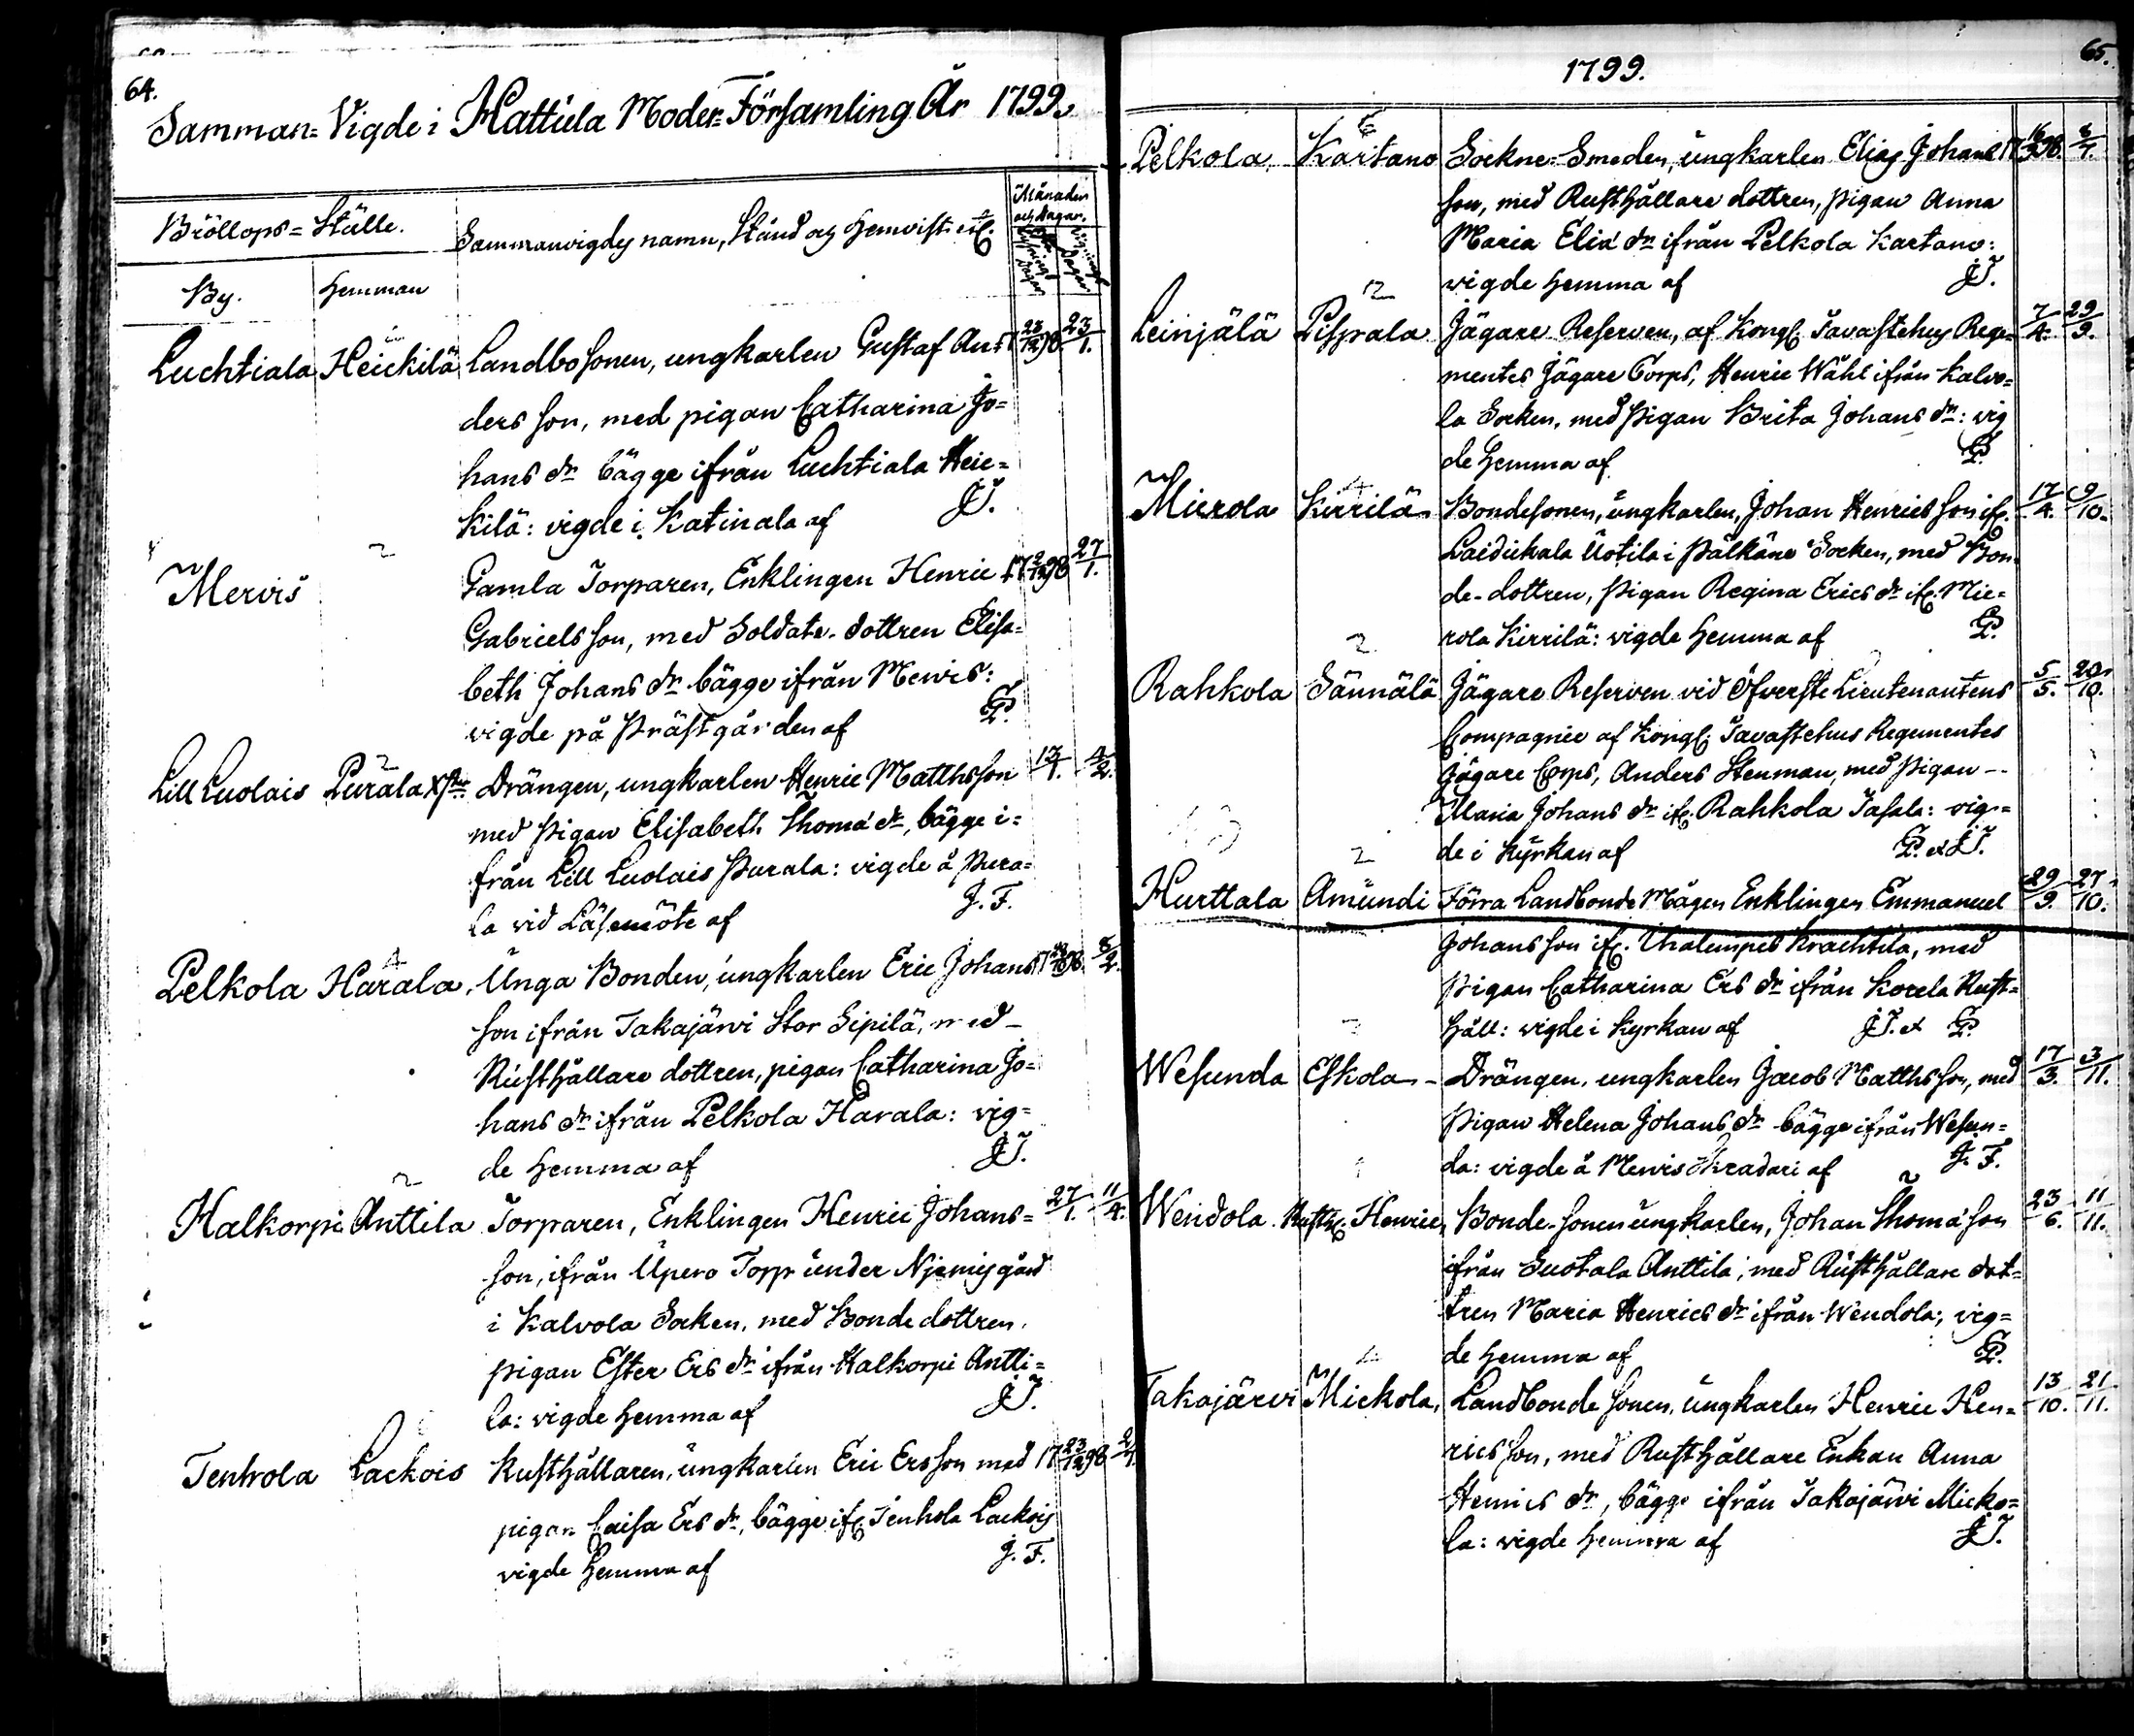 64.
Samman= Vigde i Hattula Moder=Församling År 1799.
Bröllops=Ställe.
Sammanvigdes namn, Stånd och Hemvist etc.
Månaden och Dagar.
Lysnings Dagen
Vignings Dagen
By.
Hemman
Luchtiala Heickilä Landbosonen, ungkarlen Gustaf An= 17 23/12 98. 23/1.
ders son, med pigan Catharina Jo=
hans dr bägge ifrån Luchtiala Heic=
kilä: vigde i Katinala af JT.
Mervis Gamla Torparen, Enklingen Henric 17 2/12 98 27/1.
Gabriels son, med Soldate-dottren Elisa=
beth Johans dr bägge ifrån Mervis:
vigde på Prästgården af GP.
Lill Luolais Purala Drängen, ungkarlen Henric Matthsson 13/1. 4/2.
med pigan Elisabeth Thomæ dr, bägge i=
från Lill Luolais Purala: vigde å Pura=
la vid Läsemöte af J. F.
Pelkola Harala, Unga Bonden, ungkarlen Eric Johans 5/2.
son ifrån Takajärvi Stor Sipilä, med
Rusthållare dottren, pigan Catharina Jo=
hans dr ifrån Pelkola Harala: vig=
de hemma af JT.
Halkorpi Anttila Torparen, Enklingen Henric Johans= 27/1. 11/4.
son, ifrån Upero Torp under Njemis gård
i Kalvola Socken, med Bonde dottren,
pigan Ester Ers dr ifrån Halkorpi Antti=
la: vigde hemma af JT.
Tenhola Lackois Rusthållaren, ungkarlen Eric Ersson med 17 23/12 98
pigan Caisa Ers dr, bägge ifr. Tenhola Lackois
vigde hemma af J. F.
65.
1799.
Pelkola Kartano Sockne-Smeden, ungkarlen Elias Johans
son, med Rusthållare dottren, pigan Anna
Maria Eliæ dr ifrån Pelkola Kartano:
vigde hemma af JT.
Leinjälä Pispala Jägare Reserven, af Kongl. Tavastehus Rege= 7/4. 29/9.
mentes Jägare Corps, Henric Wåhl ifrån Kalvo=
la Socken, med pigan Brita Johans dr: vig
de hemma af GP.
Mierola Kirrilä Bondesonen, ungkarlen, Johan Henrics son ifr. 17/4. 9/10.
Laidickala Uotila i Pälkäne Socken, med Bon
de-dottren, pigan Regina Erics dr ifr. Mie=
rola Kirrilä: vigde hemma af GP.
Rahkola Sännälä Jägare Reserven vid Öfverste Lieutenantens 5/5. 20/10.
Compagnie af Kongl. Tavastehus Regementes
Jägare Corps, Anders Stenman, med pigan
Maria Johans dr ifr. Rahkola Jasala: vig=
de i Kyrkan af GP. et JT.
Hurttala Amundi Förra Landbonde Mågen Enklingen Emmanuel 29/9. 27/10.
Johansson ifr. Thalempes Krachtila, med
pigan Catharina Ers dr ifrån Korela Rust=
håll: vigde i Kyrkan af JT. et GP.
Wesunda Eskola Drängen, ungkarlen Jacob Matthsson, med 17/3. 3/11.
pigan Helena Johans dr bägge ifrån Wesun=
da: vigde å Mervis Skradari af J. F.
Wendola Rusth. Henric, Bonde-sonen ungkarlen, Johan Thomæ son 23/6. 11/11.
ifrån Suotala Anttila, med Rusthållare dot=
tren Maria Henrics dr ifrån Wendola; vig=
de hemma af GP.
Takajärvi Mickola, Landbonde sonen, ungkarlen Henric Hen= 13/10. 21/11.
rics son, med Rusthållare Enkan Anna
Henrics dr, bägge ifrån Takajärvi Micko=
la: vigde hemma af JT.